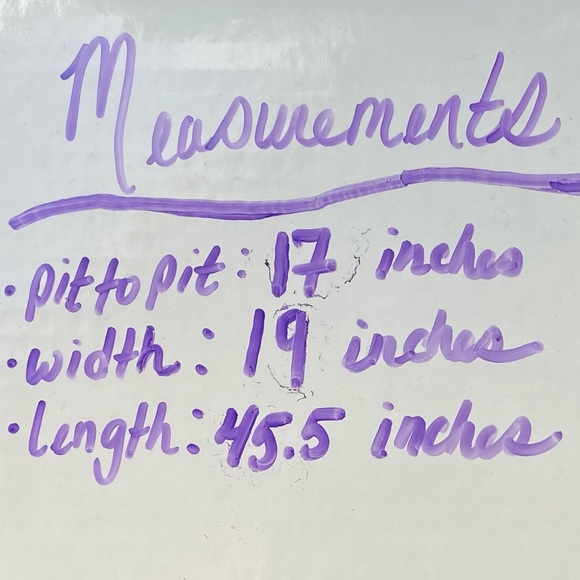 Measurements
• pit to pit: 17 inches
• width: 19 inches
• length: 45.5 inches